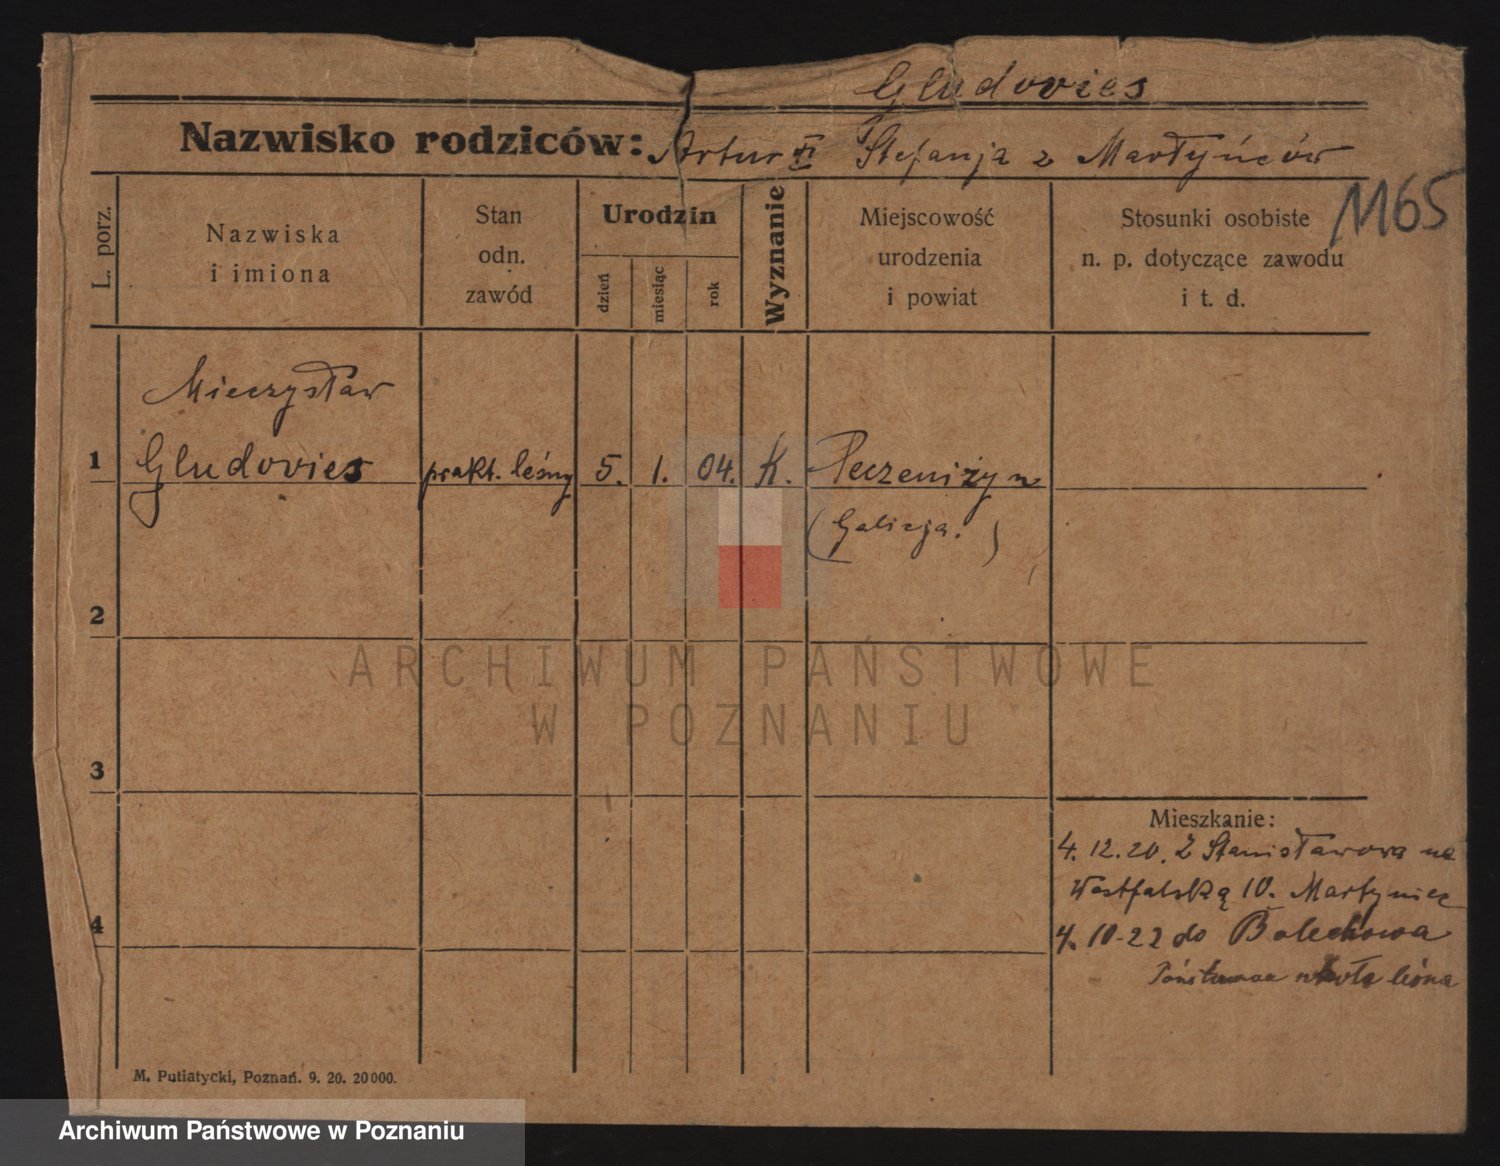 Gludovics
Nazwisko rodziców: Artur Stefanja z Martyńców
1165
L. porz.
Nazwiska
i imiona
Stan
odn.
zawód
Urodzin
dzień
miesiąc
rok
Wyznanie
Miejscowość
urodzenia
i powiat
Stosunki osobiste
n. p. dotyczące zawodu
i t. d.
Mieczysław
1 Gludovics prakt. leśny 5. 1. 04. K. Peczeniżyn
(Galicja.)
2
ARCHIWUM PAŃSTWOWE
W POZNANIU
3
Mieszkanie:
4. 12. 20. Z Stanisławowa na
Westfalską 10. Martyniec
4
4. 10-22 do Bolechowa
Państwowa szkoła leśna
M. Putiatycki, Poznań. 9. 20. 20000.
Archiwum Państwowe w Poznaniu